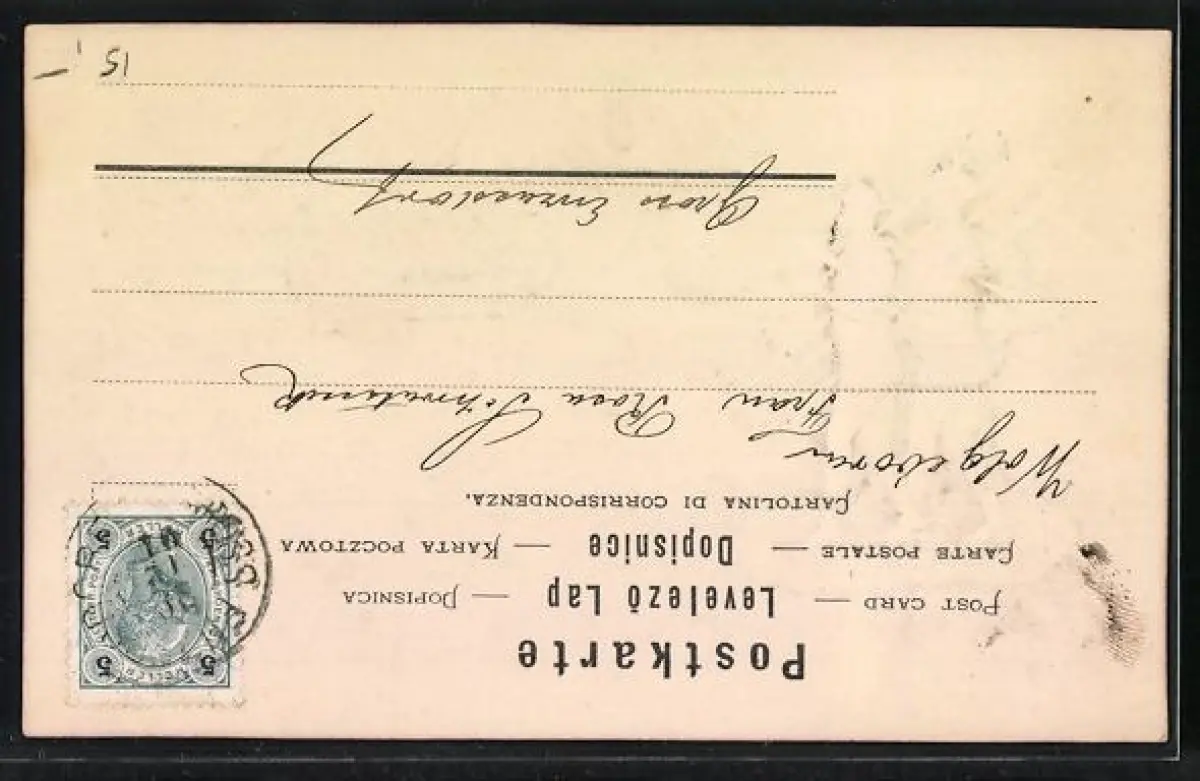 Postkarte
POST CARD — Levelező Lap — DOPISNICA
CARTE POSTALE — Dopisnice — KARTA POCZTOWA
CARTOLINA DI CORRISPONDENZA.
Wolgeboren
Frau Rosa
Gross Enzersdorf
15
5 5
5 5